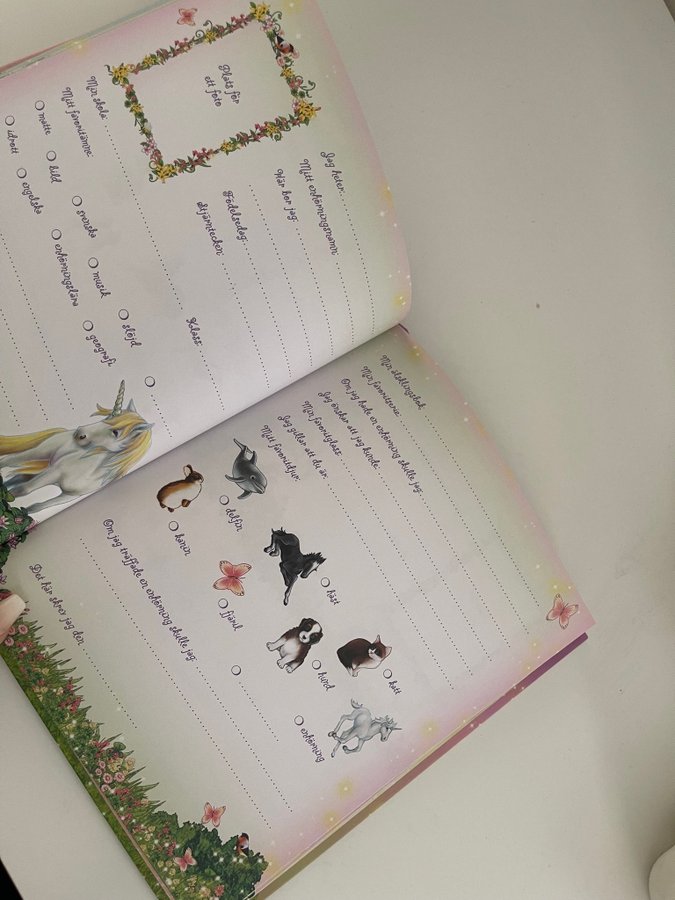 Plats för
ett foto
Jag heter:
Mitt enhörningsnamn:
Här bor jag:
Födelsedag:
Stjärntecken:
Min skola:
Klass:
Mitt favoritämne:
matte
bild
svenska
musik
slöjd
idrott
engelska
enhörningslära
geografi
Min älsklingsbok:
Min favoritserie:
Om jag hade en enhörning skulle jag:
Jag önskar att jag kunde:
Min favoritglass:
Jag gillar att du är:
Mitt favoritdjur:
delfin
häst
katt
kanin
fjäril
hund
enhörning
Om jag träffade en enhörning skulle jag:
Det här skrev jag den